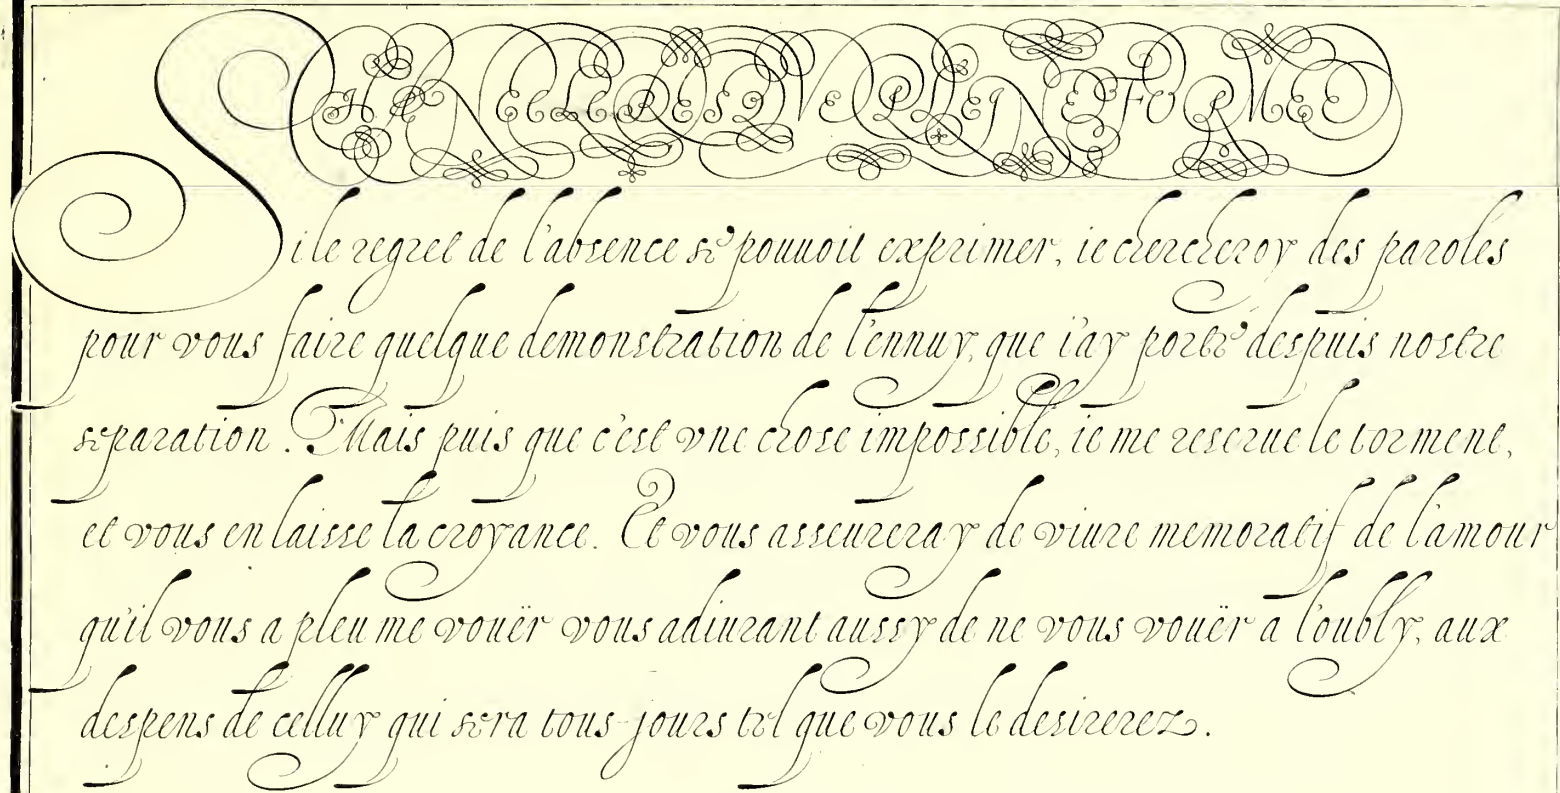 Si le regret de l'absence se pouuoit exprimer, ie chercheroy des paroles
pour vous faire quelque demonstration de l'ennuy, que i'ay porté despuis nostre
separation. Mais puis que c'est vne chose impossible, ie me reserue le torment,
et vous en laisse la croyance. Et vous asseureray de viure memoratif de l'amour
qu'il vous a pleu me vouër vous adiurant aussy de ne vous vouër a l'oubly, aux
despens de celluy qui sera tous-jours tel que vous le desirerez.